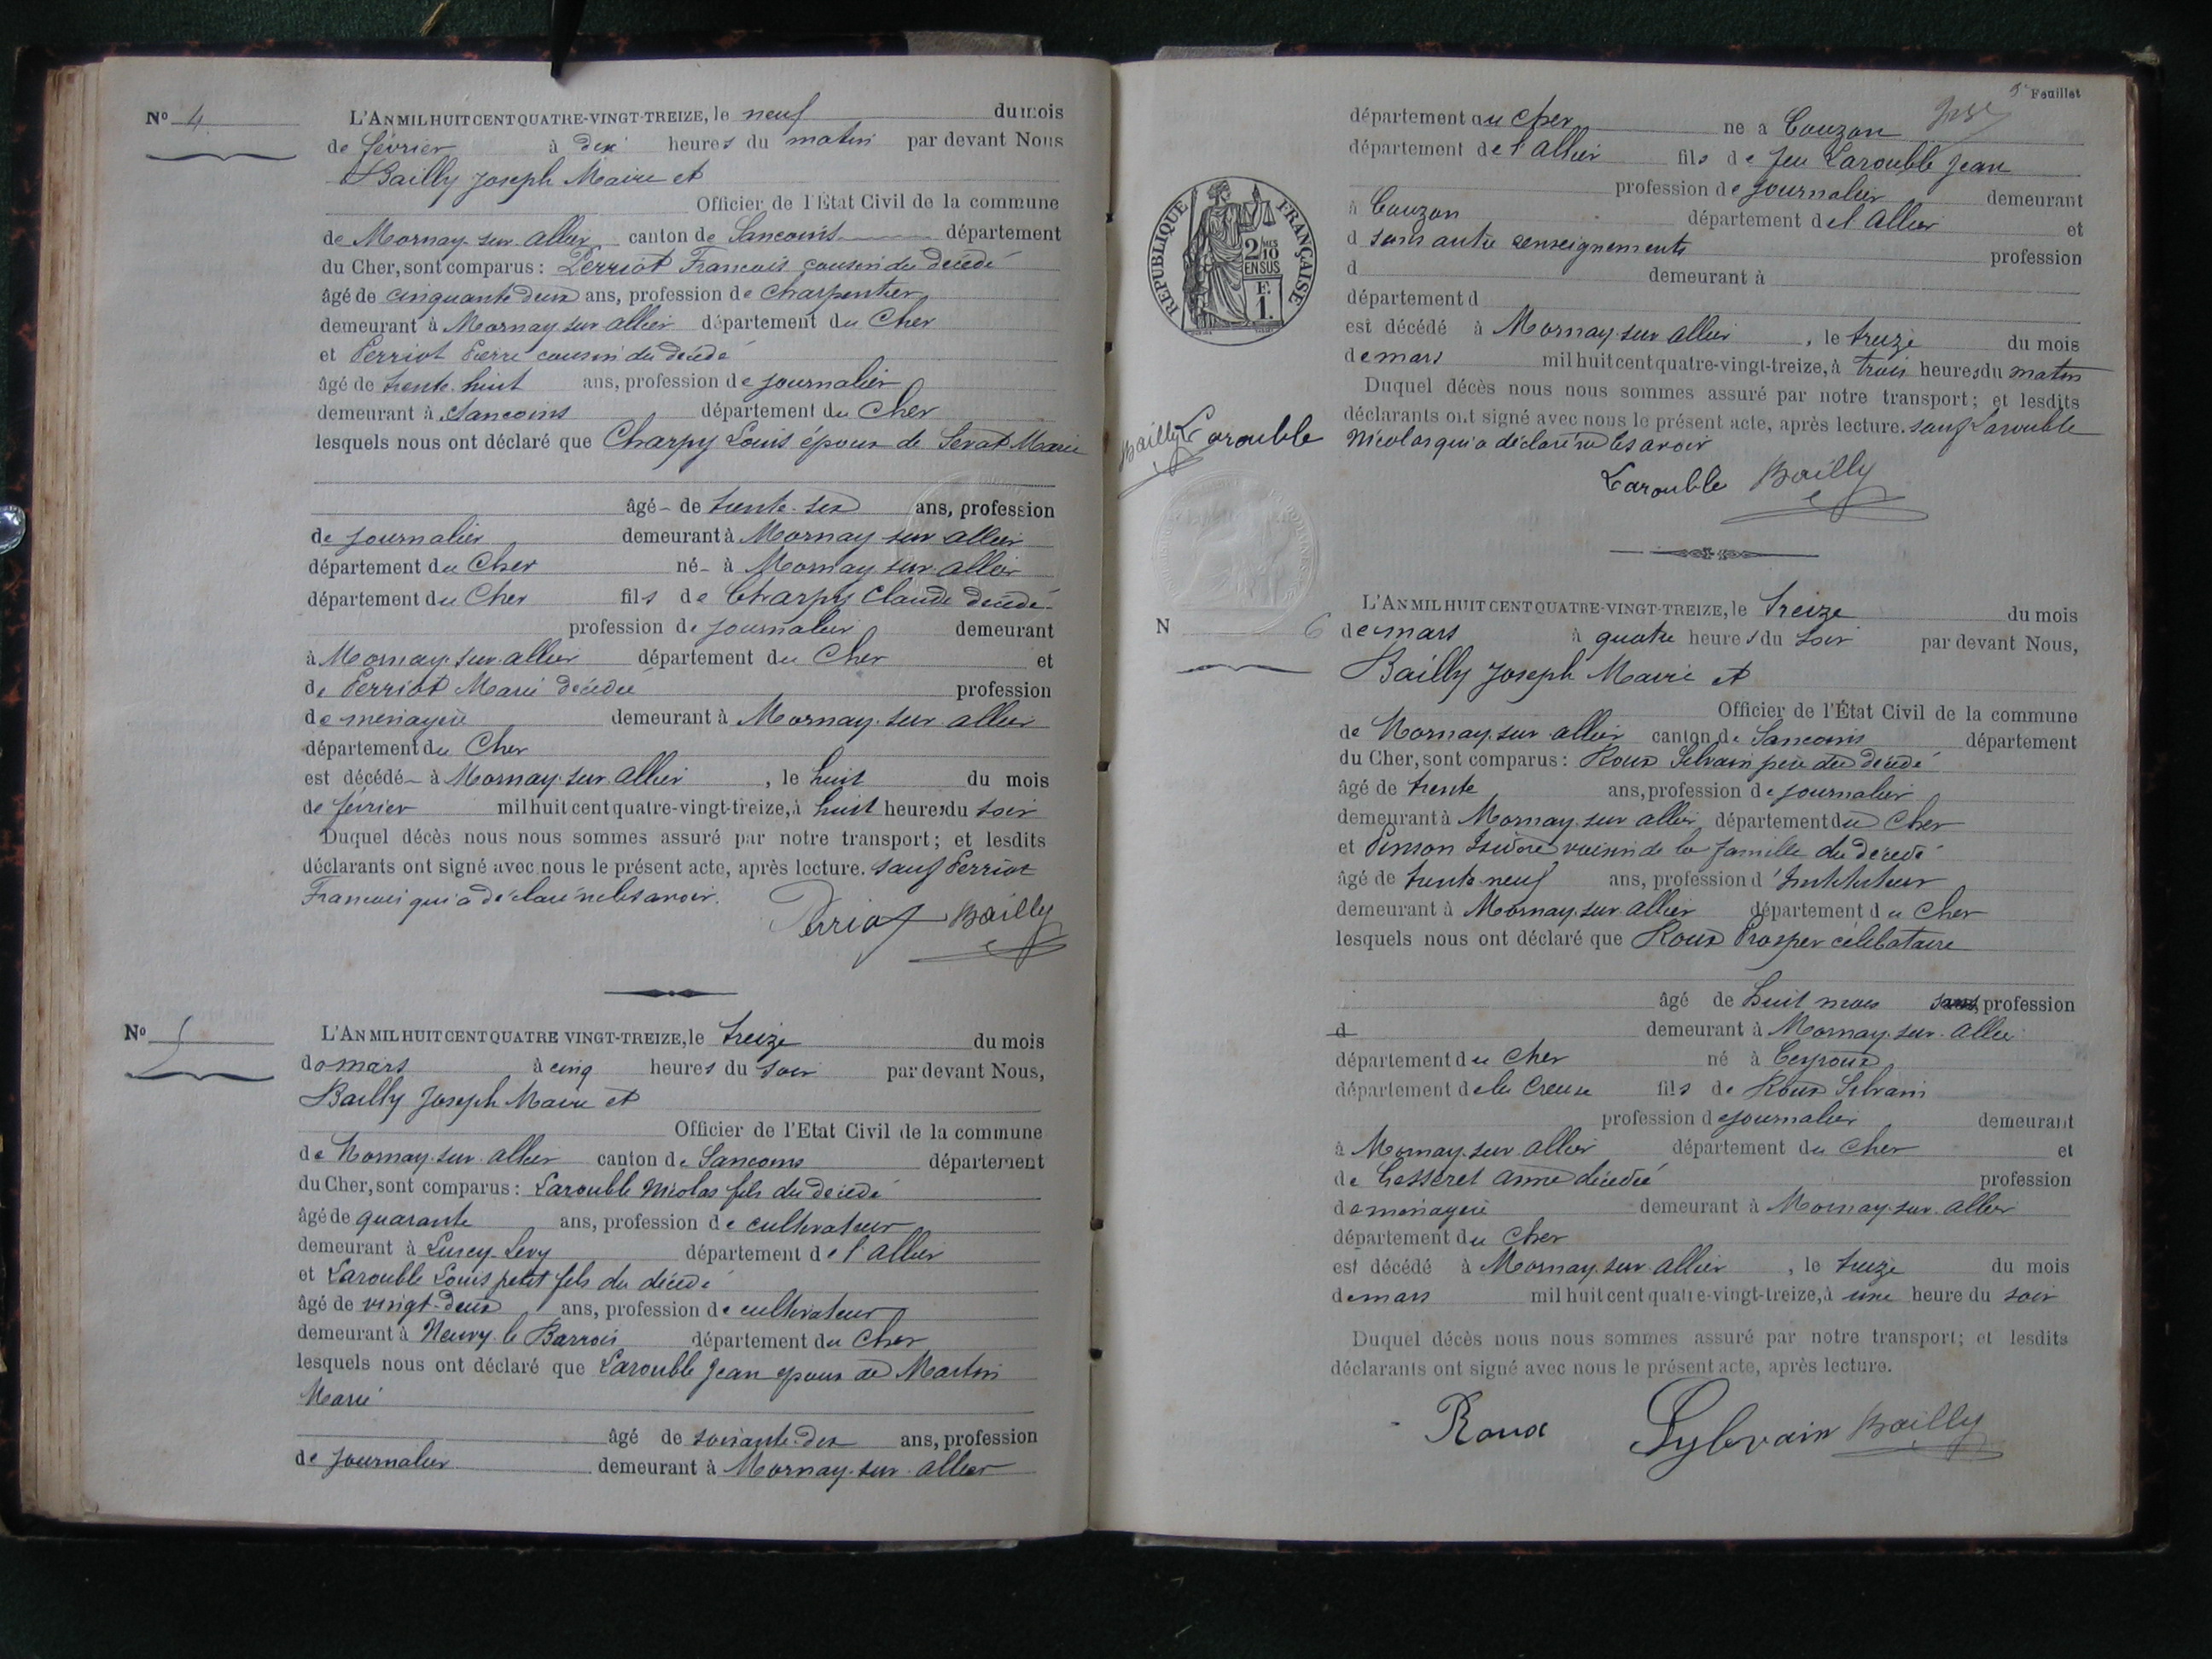 Nº 4
L'AN MIL HUIT CENT QUATRE-VINGT-TREIZE, le neuf du mois
de février à dix heures du matin par devant Nous
Bailly Joseph Maire et
Officier de l'Etat Civil de la commune
de Mornay-sur-allier canton de Sancoins département
du Cher, sont comparus : Perriot Francois cousin du décédé
âgé de cinquante deux ans, profession de charpentier
demeurant à Mornay-sur-allier département du Cher
et Perriot Pierre cousin du décédé
âgé de trente-huit ans, profession de journalier
demeurant à Sancoins département du Cher
lesquels nous ont déclaré que Charpy Louis époux de Serat Marie
âgé de trente-six ans, profession
de journalier demeurant à Mornay sur allier
département du Cher né à Mornay sur allier
département du Cher fils de Charpy Claude décédé
profession de journalier demeurant
à Mornay-sur-allier département du Cher et
de Perriot Marie décédée profession
de ménagère demeurant à Mornay-sur-allier
département du Cher
est décédé à Mornay-sur-allier, le huit du mois
de février mil huit cent quatre-vingt-treize, à huit heures du soir
Duquel décès nous nous sommes assuré par notre transport; et lesdits
déclarants ont signé avec nous le présent acte, après lecture. sauf Perriot
Francois qui a déclaré ne le savoir.
Perriot Bailly
Nº 5
L'AN MIL HUIT CENT QUATRE VINGT-TREIZE, le treize du mois
de mars à cinq heures du soir par devant Nous,
Bailly Joseph Maire et
Officier de l'Etat Civil de la commune
de Mornay-sur-allier canton de Sancoins département
du Cher, sont comparus : Larouble Nicolas fils du décédé
âgé de quarante ans, profession de cultivateur
demeurant à Lurcy-Levy département de l'allier
et Larouble Louis petit fils du décédé
âgé de vingt-deux ans, profession de cultivateur
demeurant à Neuvy-le Barrois département du Cher
lesquels nous ont déclaré que Larouble Jean époux de Martin
Marie
âgé de soixante-dix ans, profession
de journalier demeurant à Mornay-sur-allier
5e Feuillet
département du Cher né à Couzon
département de l'allier fils de feu Larouble Jean
profession de journalier demeurant
à Couzon département de l'allier et
d sans autre renseignements profession
d demeurant à
département d
est décédé à Mornay-sur allier, le treize du mois
de mars mil huit cent quatre-vingt-treize, à trois heures du matin
Duquel décès nous nous sommes assuré par notre transport; et lesdits
déclarants ont signé avec nous le présent acte, après lecture. sauf Larouble
Nicolas qui a déclaré ne le savoir
Larouble Bailly
RÉPUBLIQUE FRANÇAISE
2/10 MES
EN SUS
F.
1.
Bailly Larouble
N 6
L'AN MIL HUIT CENT QUATRE-VINGT-TREIZE, le treize du mois
de mars à quatre heures du soir par devant Nous,
Bailly Joseph Maire et
Officier de l'État Civil de la commune
de Mornay-sur-allier canton de Sancoins département
du Cher, sont comparus : Roux Silvain père du décédé
âgé de trente ans, profession de journalier
demeurant à Mornay-sur allier département du Cher
et Pinson Isidore voisin de la famille du décédé
âgé de trente-neuf ans, profession d'Instituteur
demeurant à Mornay-sur-allier département du Cher
lesquels nous ont déclaré que Roux Prosper célibataire
âgé de huit mois sans, profession
d demeurant à Mornay-sur-allier
département du Cher né à Ceyroux
département de la Creuse fils de Roux Silvain
profession de journalier demeurant
à Mornay-sur allier département du Cher et
de anne décédée profession
de ménagère demeurant à Mornay-sur-allier
département du Cher
est décédé à Mornay-sur-allier, le treize du mois
de mars mil huit cent quatre-vingt-treize, à une heure du soir
Duquel décès nous nous sommes assuré par notre transport; et lesdits
déclarants ont signé avec nous le présent acte, après lecture.
Roux Sylvain Bailly